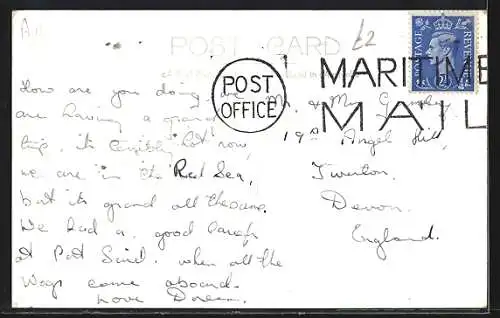 POST CARD
£2
POSTAGE REVENUE
POST OFFICE
MARITIME
MAIL
How are you doing, we
are having a grand
trip, its terribly hot now,
we are in the Red Sea,
but its grand all the same.
We had a good
at Port Said. when all the
Wogs come aboard.
Love Doreen.
Mr. & Mrs
19A Angel Hill,
Tiverton,
Devon.
England.